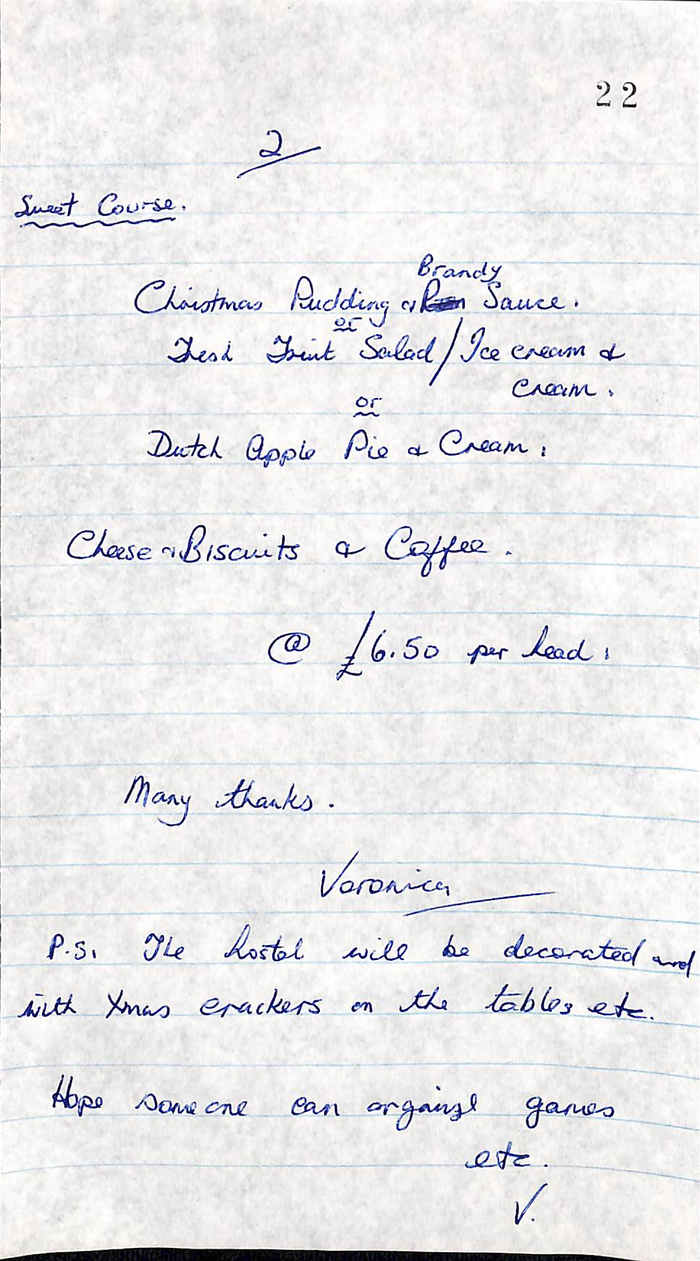 22
2
Sweet Course.
Brandy
Christmas Pudding & Sauce.
or
Fresh Fruit Salad/Ice cream &
cream.
or
Dutch Apple Pie & Cream.
Cheese & Biscuits & Coffee.
@ £6.50 per head.
Many thanks.
Veronica
P.S. The hostel will be decorated and
with Xmas crackers on the tables etc.
Hope someone can organise games
etc.
V.